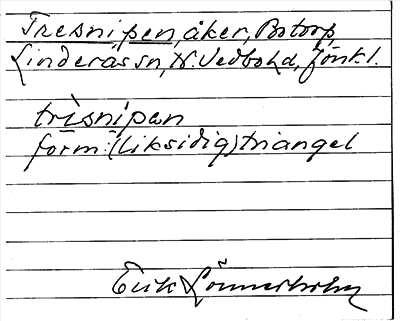 Tresnipen, åker, Botorp,
Linderås sn, N. Vedbo hd, Jönk l.
trìsnipan
form: (liksidig) triangel
Erik Lönnerholm